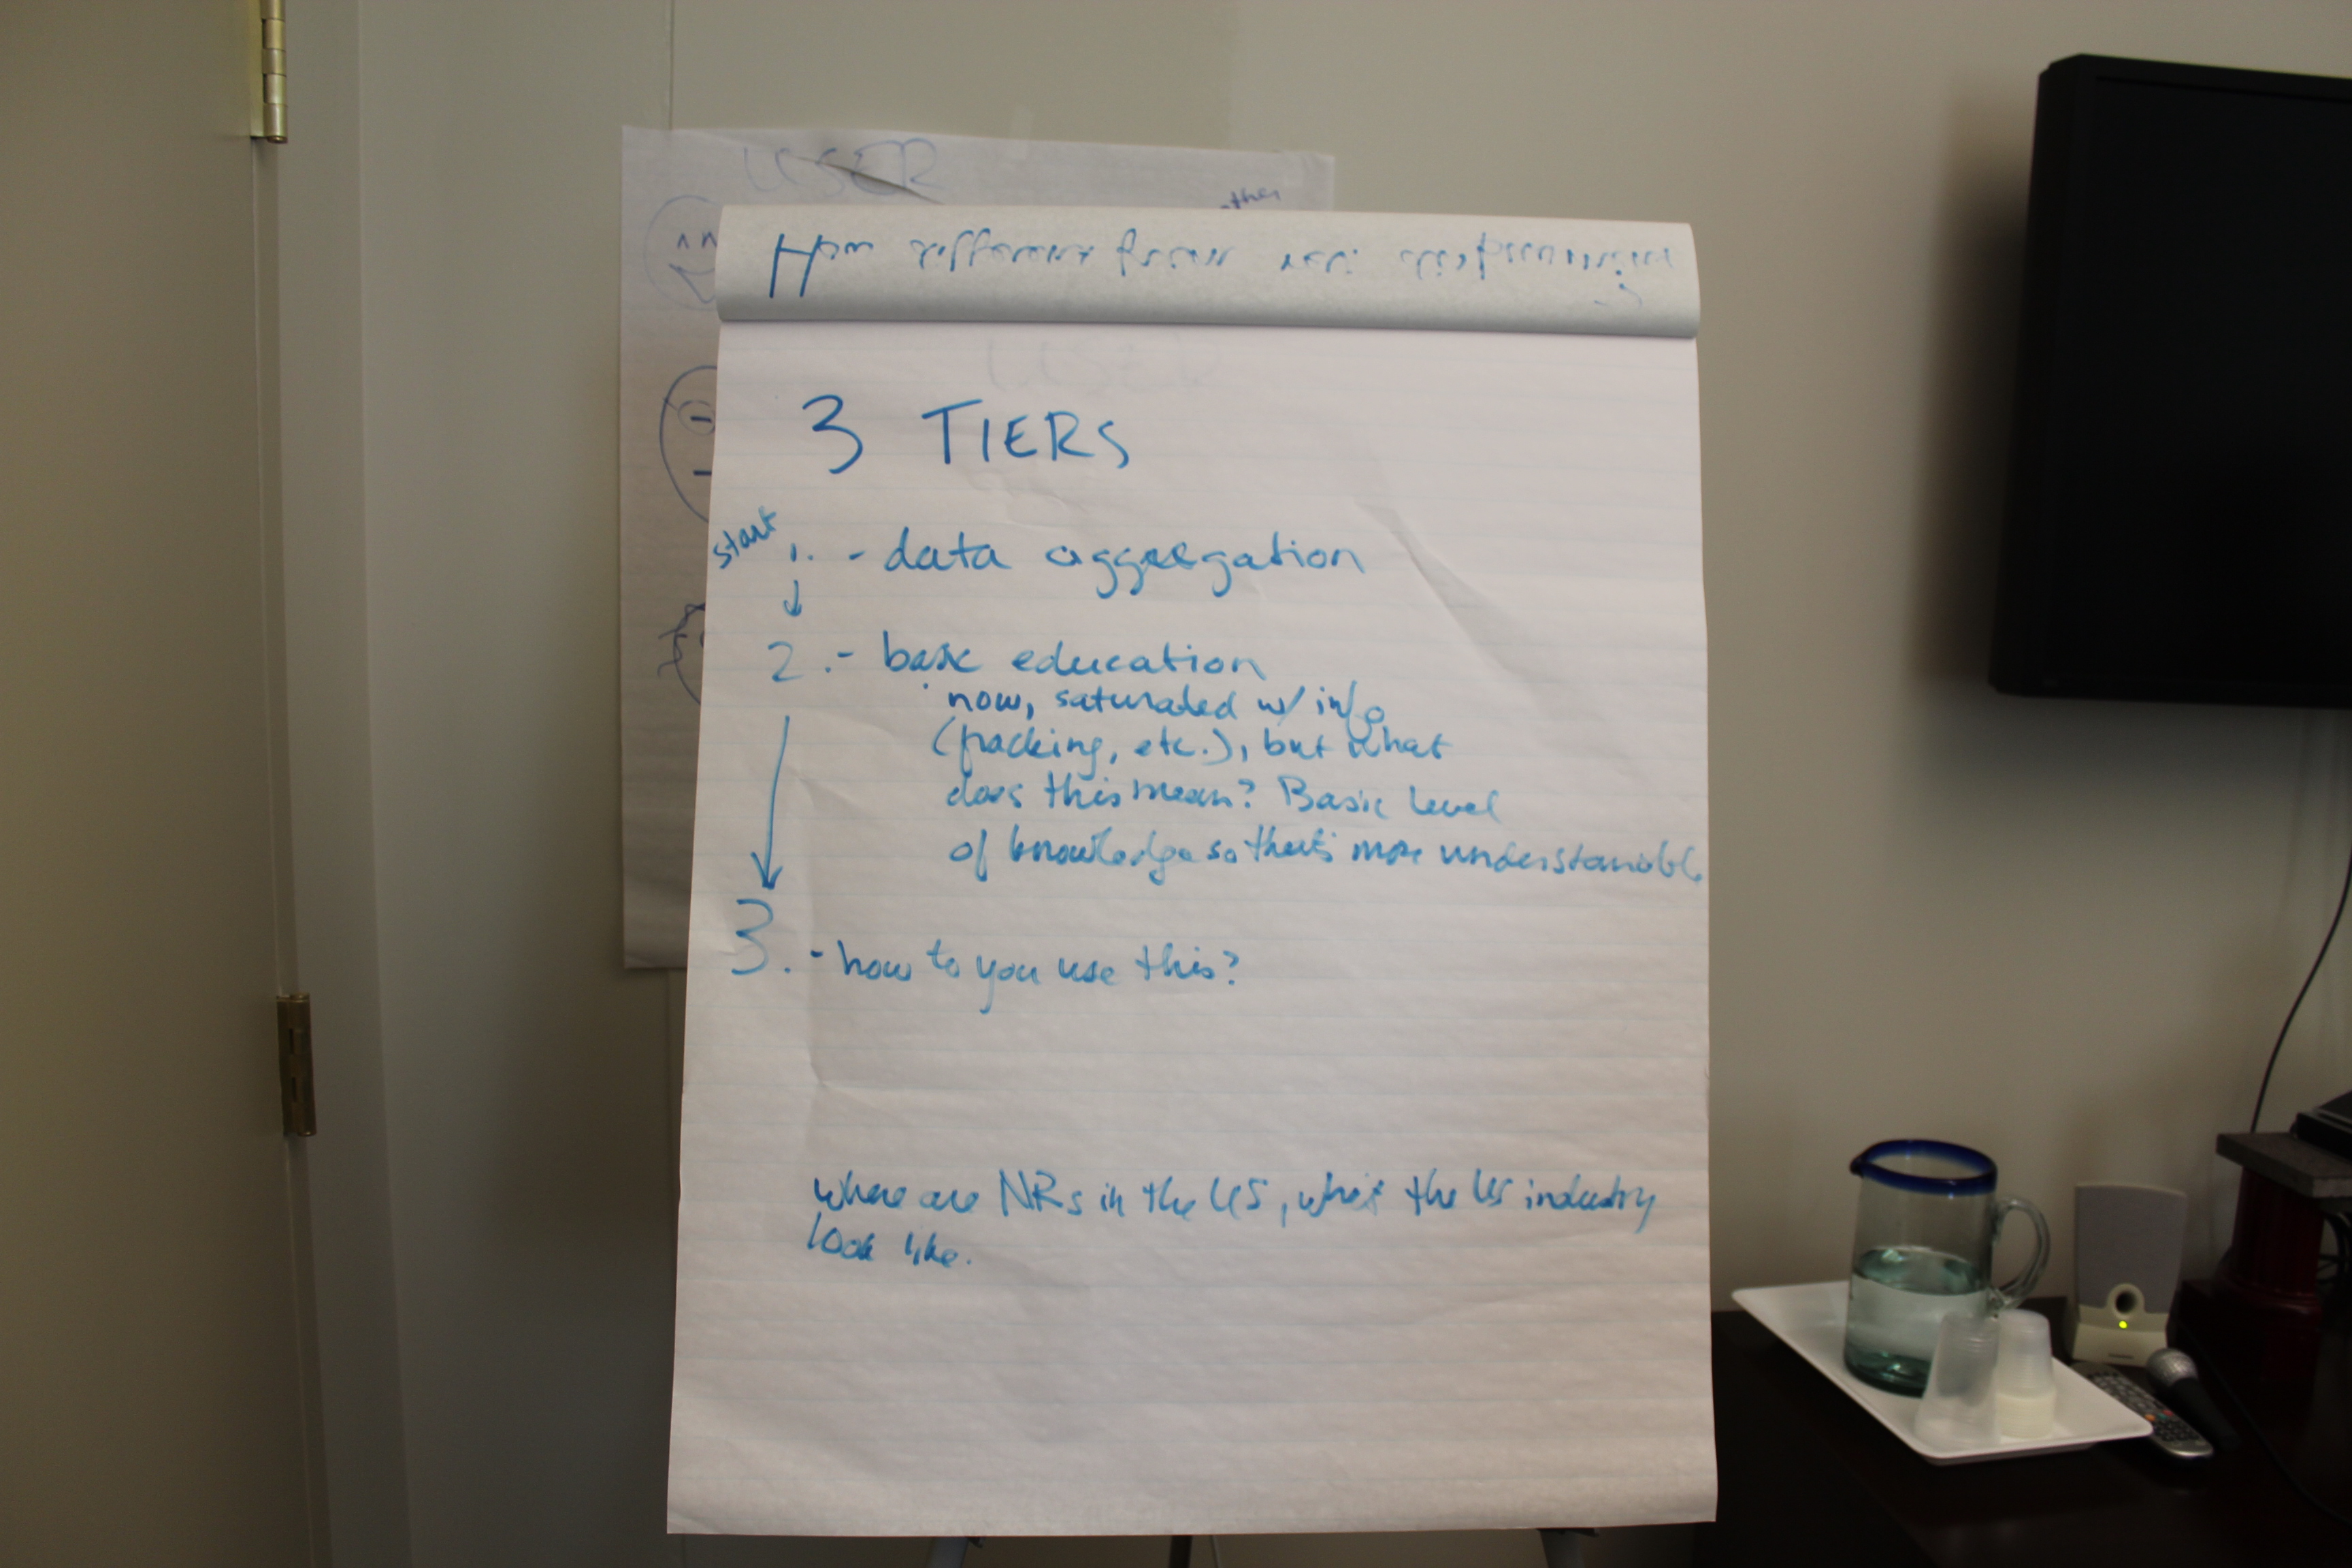 USER
other
3 TIERS
start 1. - data aggregation
2. - basic education
now, saturated w/ info
(fracking, etc.), but what
does this mean? Basic level
of knowledge so that's more understandable
3. - how to you use this?
where are NRs in the US, what the US industry
look like.